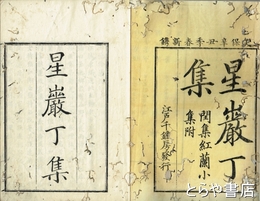 天保辛丑季春新鐫
星巖丁集
閨集紅蘭小集附
江戸千鍾房發行
星巖丁集
とらや書店